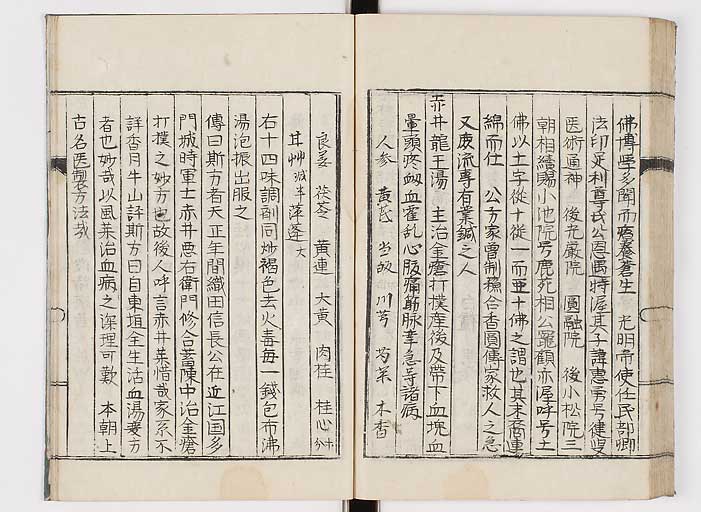 佛博學多聞而療養蒼生　光明帝使任民部卿
法印足利尊氏公恩遇特渥其子諱惠勇号健叟
医術通神　後光嚴院　圓融院　後小松院三
朝相續賜小池院号鹿死相公寵顧亦渥呼号土
佛以土字從十從一而亜十佛之謂也其末裔連
綿而仕　公方家曾制蘓合香圓傳家救人之急
又庻流專有業鍼之人
赤井龍王湯　主治金瘡打撲産後及帶下血塊血
暈頭疼衂血霍乱心腹痛筋脉拿急等諸病
人参　黄芪　当故　川芎　芍薬　木香
良姜　茯苓　黄連　大黄　肉桂　桂心十分
甘艸減半　萍蓬大
右十四味調剤同炒褐色去火毒毎一錢包布沸
湯泡振出服之
傳曰斯方者天正年間織田信長公在近江国多
門城時軍士赤井悪右衛門修合蓄陳中治金瘡
打撲之妙方也故後人呼言赤井薬惜哉家系不
詳香月牛山評斯方曰自東垣全生活血湯変方
者也妙哉以風薬治血病之深理可歎　本朝上
古名医製方法哉